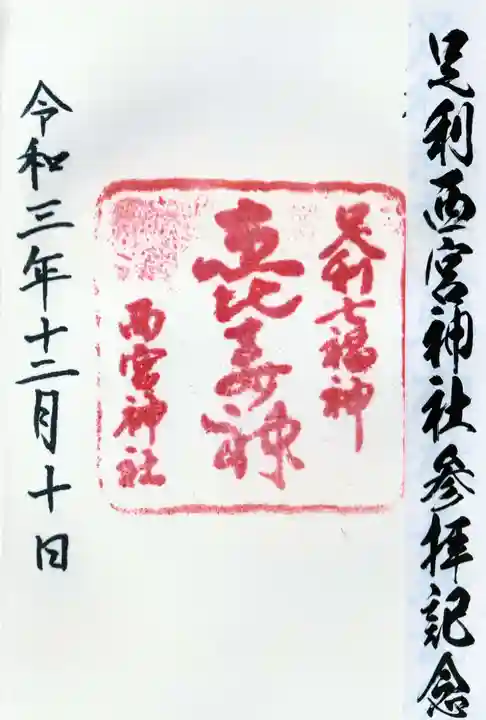 足利西宮神社参拝記念
足利七福神
恵比寿神
西宮神社
令和三年十二月十日